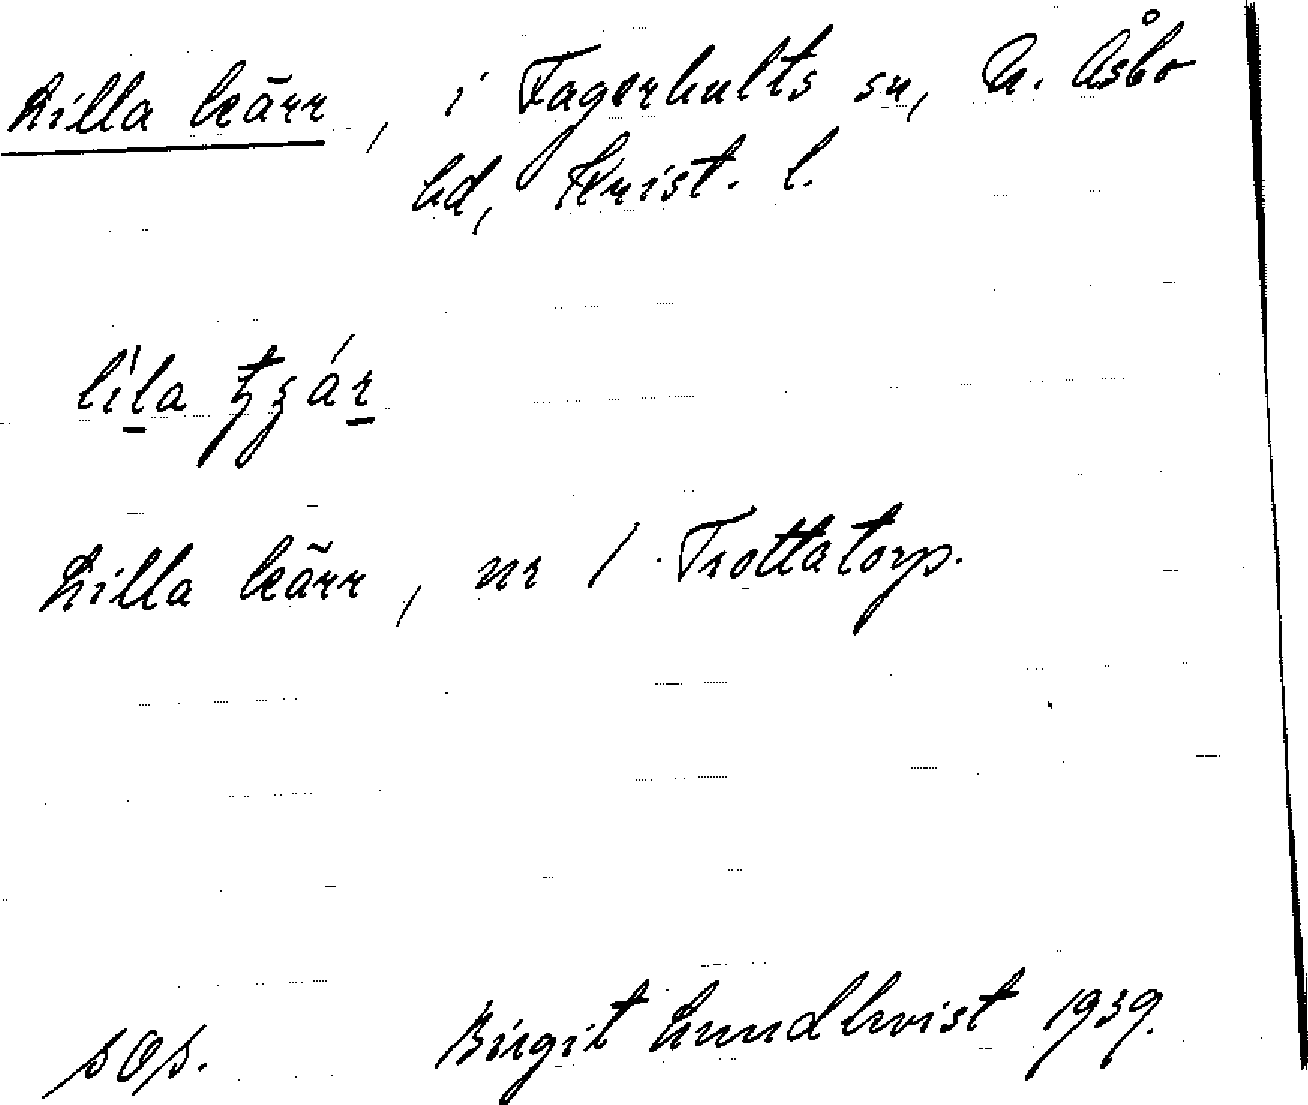 Lilla kärr, i Fagerhults sn, N. Åsbo
hd, Krist. l.
Lilla kärr, nr 1 Trottatorp.
Birgit Lundkvist 1939.